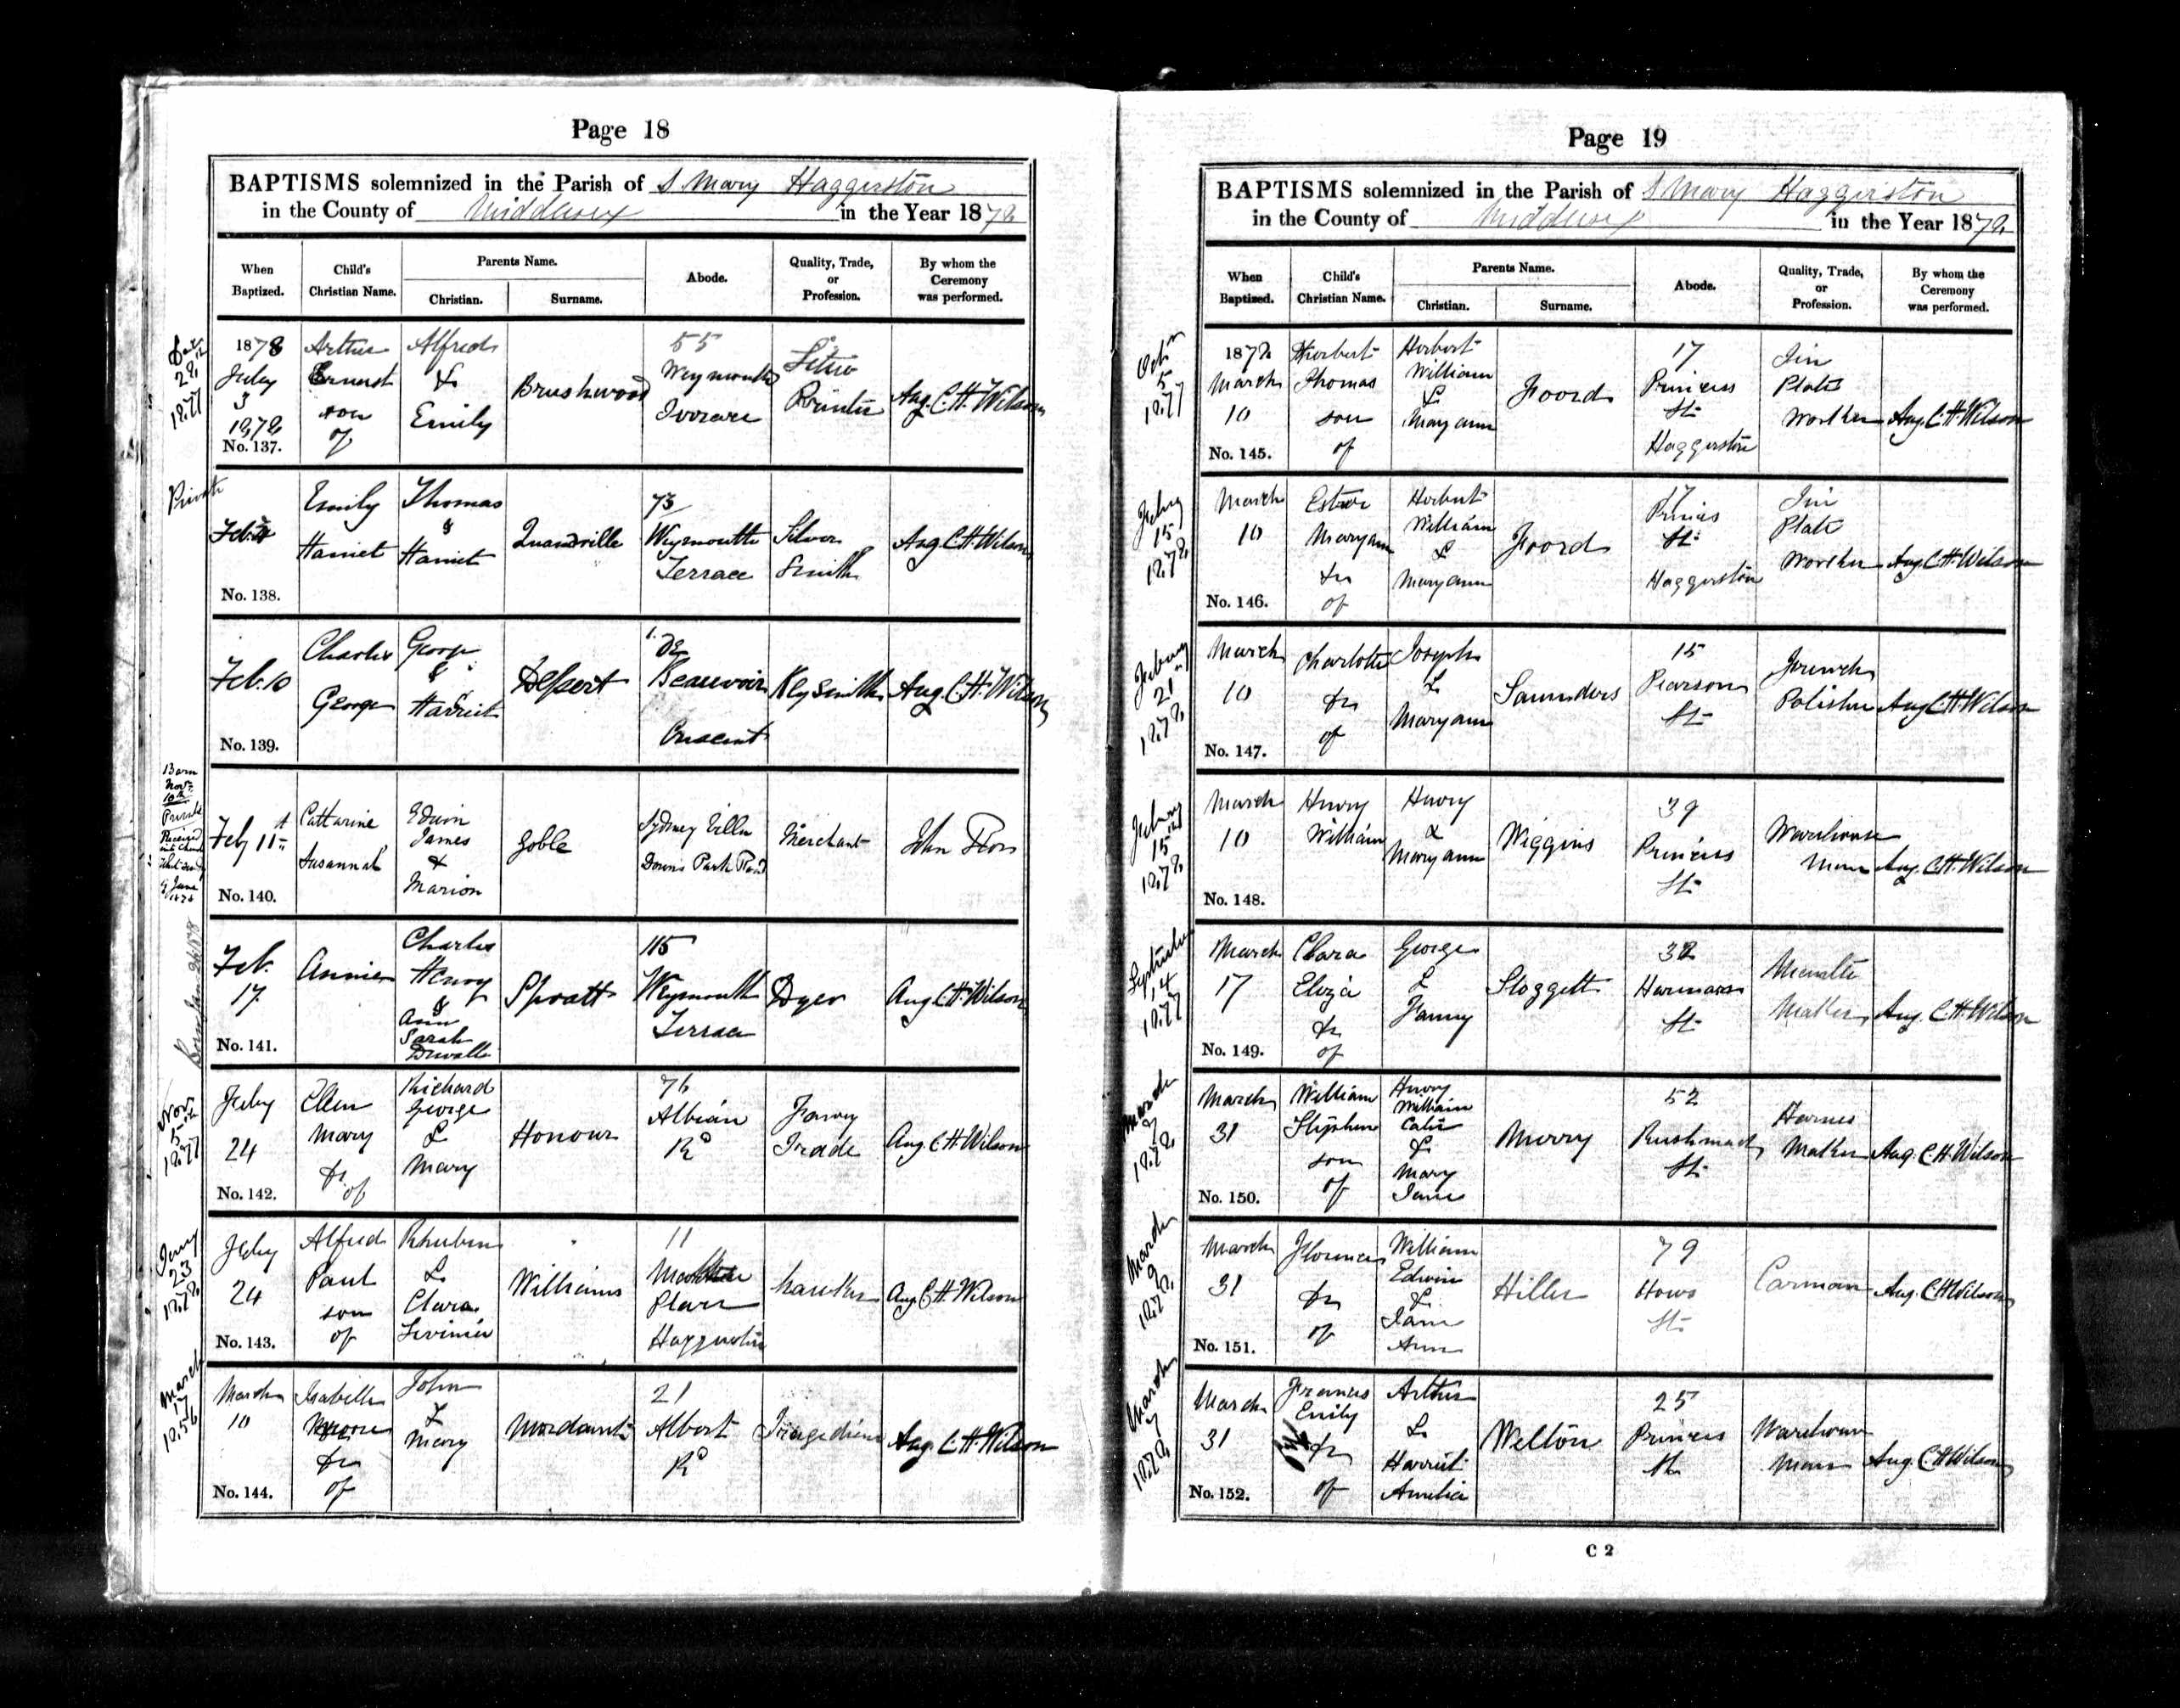 Page 18
BAPTISMS solemnized in the Parish of S. Mary Haggerston
in the County of Middlesex in the Year 1878
When Baptized.
Child's Christian Name.
Parents Name.
Christian.
Surname.
Abode.
Quality, Trade, or Profession.
By whom the Ceremony was performed.
1878
July
3
1878
No. 137.
Arthur
Ernest
son
of
Alfred
&
Emily
Brushwood
55
Weymouth
Litho
Printer
Aug. C. H. Wilson
Private
No. 138.
Emily
Harriet
Thomas
&
Harriet
73
Weymouth
Terrace
Silver
Smith
Aug C. H. Wilson
Feb. 10
No. 139.
Charles
George
George
&
Harriet
1. De
Beauvoir
Crescent
Key Smith
Aug. C. H. Wilson
Born
Nov.
10th
Private
Received
into Church
9 June
Feby 11th
No. 140.
Catharine
Susannah
Edwin
James
&
Marion
Goble
Sydney Villa
Downs Park Road
Merchant
John
Born Jan 26 1878
Feb.
17.
No. 141.
Annie
Charles
Henry
&
Ann
Sarah
Spratt
115
Weymouth
Terrace
Dyer
Aug. C. H. Wilson
Nov.
5th
1877
Feby
24
No. 142.
Ellen
Mary
dr of
Richard
George
&
Mary
Honour
76
Albion
Rd
Fancy
Trade
Aug. C. H. Wilson
Jany
23
1878
Feby
24
No. 143.
Alfred
Paul
son
of
Rhuben
&
Clara
Williams
11
Place
Haggerston
hawker
Aug. C. H. Wilson
March
17
1856
March
10
No. 144.
Isabella
dr
of
John
&
Mary
Mordaunt
21
Albert
Rd
Tragedian
Aug. C. H. Wilson
Page 19
BAPTISMS solemnized in the Parish of S Mary Haggerston
in the County of Middlesex in the Year 1878
When Baptized.
Child's Christian Name.
Parents Name.
Christian.
Surname.
Abode.
Quality, Trade, or Profession.
By whom the Ceremony was performed.
Octr
5
1877
1878
March
10
No. 145.
Herbert
Thomas
son
of
Herbert
William
&
Maryann
Foord
17
Princess
St
Haggerston
Tin
Plate
Worker
Aug. C. H. Wilson
Feby
15
1878
March
10
No. 146.
Maryann
dr
of
Herbert
William
&
Maryann
Foord
17
St
Haggerston
Tin
Plate
Worker
Aug. C. H. Wilson
21
1878
March
10
No. 147.
Charlotte
dr
of
Joseph
&
Maryann
Saunders
15
Pearson
St
French
Polisher
Aug C. H. Wilson
15th
1878
March
10
No. 148.
Henry
William
Henry
&
Maryann
Wiggins
39
Princess
St
Warehouse
man
Aug. C. H. Wilson
September
14
1877
March
17
No. 149.
Clara
Eliza
dr
of
George
&
Fanny
Sloggett
St
Mantle
Maker
Aug. C. H. Wilson
March
7
1878
March
31
No. 150.
William
Stephen
son
of
Henry
William
&
Mary
Jane
Merry
52
St
Harness
Maker
Aug. C. H. Wilson
March
9
1878
March
31
No. 151.
Florence
dr
of
William
Edwin
&
Jane
Ann
Hiller
79
Hows
St
Carman
Aug. C H Wilson
March
7
1878
March
31
No. 152.
Frances
Emily
dr
of
Arthur
&
Harriet
Amelia
Welton
25
Princess
St
Warehouse
Man
Aug. C H Wilson
C 2